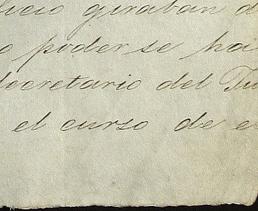 giraban d
o poder se ha
ecretario del Tu
el curso de e